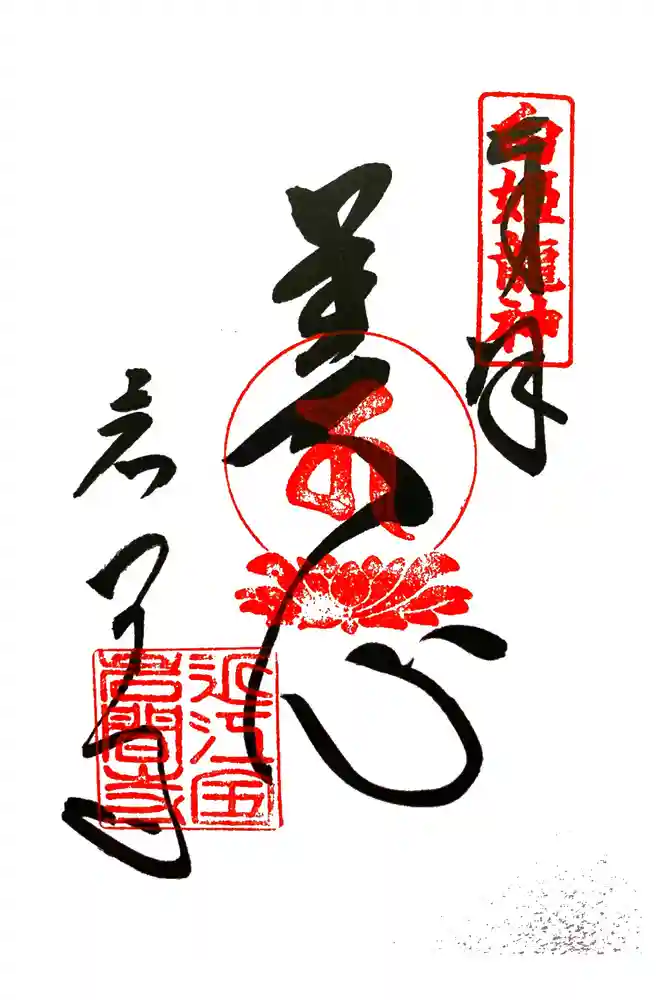 白姫龍神
奉拝
美心
岩間寺
近江国
岩間寺